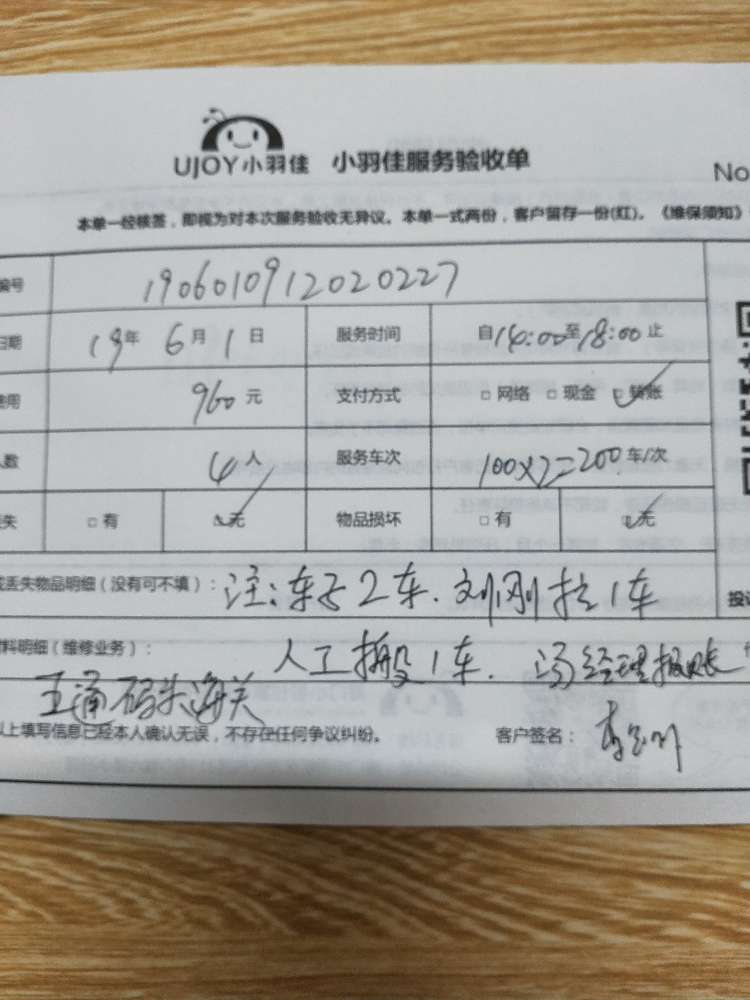 UJOY小羽佳 小羽佳服务验收单
No
本单一经核签，即视为对本次服务验收无异议。本单一式两份，客户留存一份(红)。《维保须知》
编号 1906010912020227
日期 19年 6月1日 服务时间 自14:00至18:00止
费用 960元 支付方式 □网络 □现金 ☑转账
人数 4人 服务车次 100×2=200车/次
丢失 □有 ☑无 物品损坏 □有 ☑无
或丢失物品明细（没有可不填）： 注：车子2车．刘刚拉1车
投诉
材料明细（维修业务）： 人工搬1车．冯经理报账
五通码头海关
以上填写信息已经本人确认无误，不存在任何争议纠纷。 客户签名：